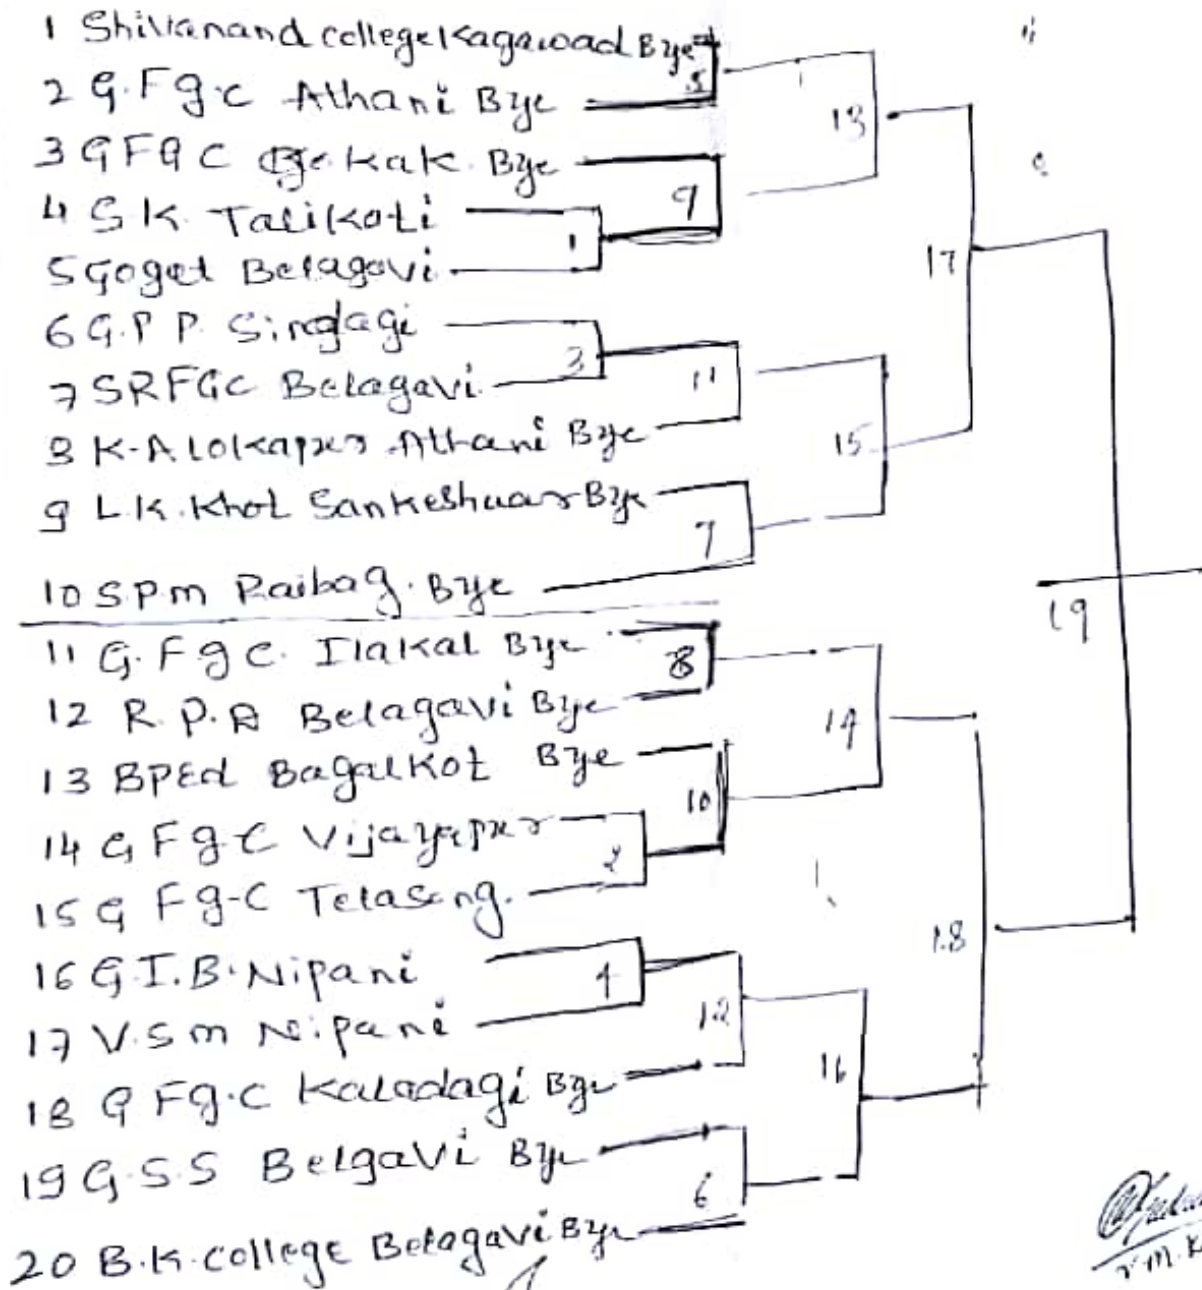 1 Shivanand college Kagawad Bye
2 G.Fg.c Athani Bye
5
13
3 GFGC Gokak. Bye
9
4 S.K. Talikoti
1
5 Goget Belagavi
17
6 G.P P. Sindagi
3
7 SRFGC Belagavi
11
8 K-A Lokapur Athani Bye
15
9 L.K. Khot Sankeshwar Bye
7
10 S.P.m Raibag. Bye
19
11 G. F g C. Ilakal Bye
8
12 R. P. D Belagavi Bye
14
13 BPEd Bagalkot Bye
10
14 G F g C Vijayapur
2
15 G Fg-C Telasang.
18
16 G.I.B. Nipani
4
17 V.S m Nipani
12
18 G Fg.C Kaladagi Bye
16
19 G.S.S Belgavi Bye
6
20 B.K. college Belagavi Bye